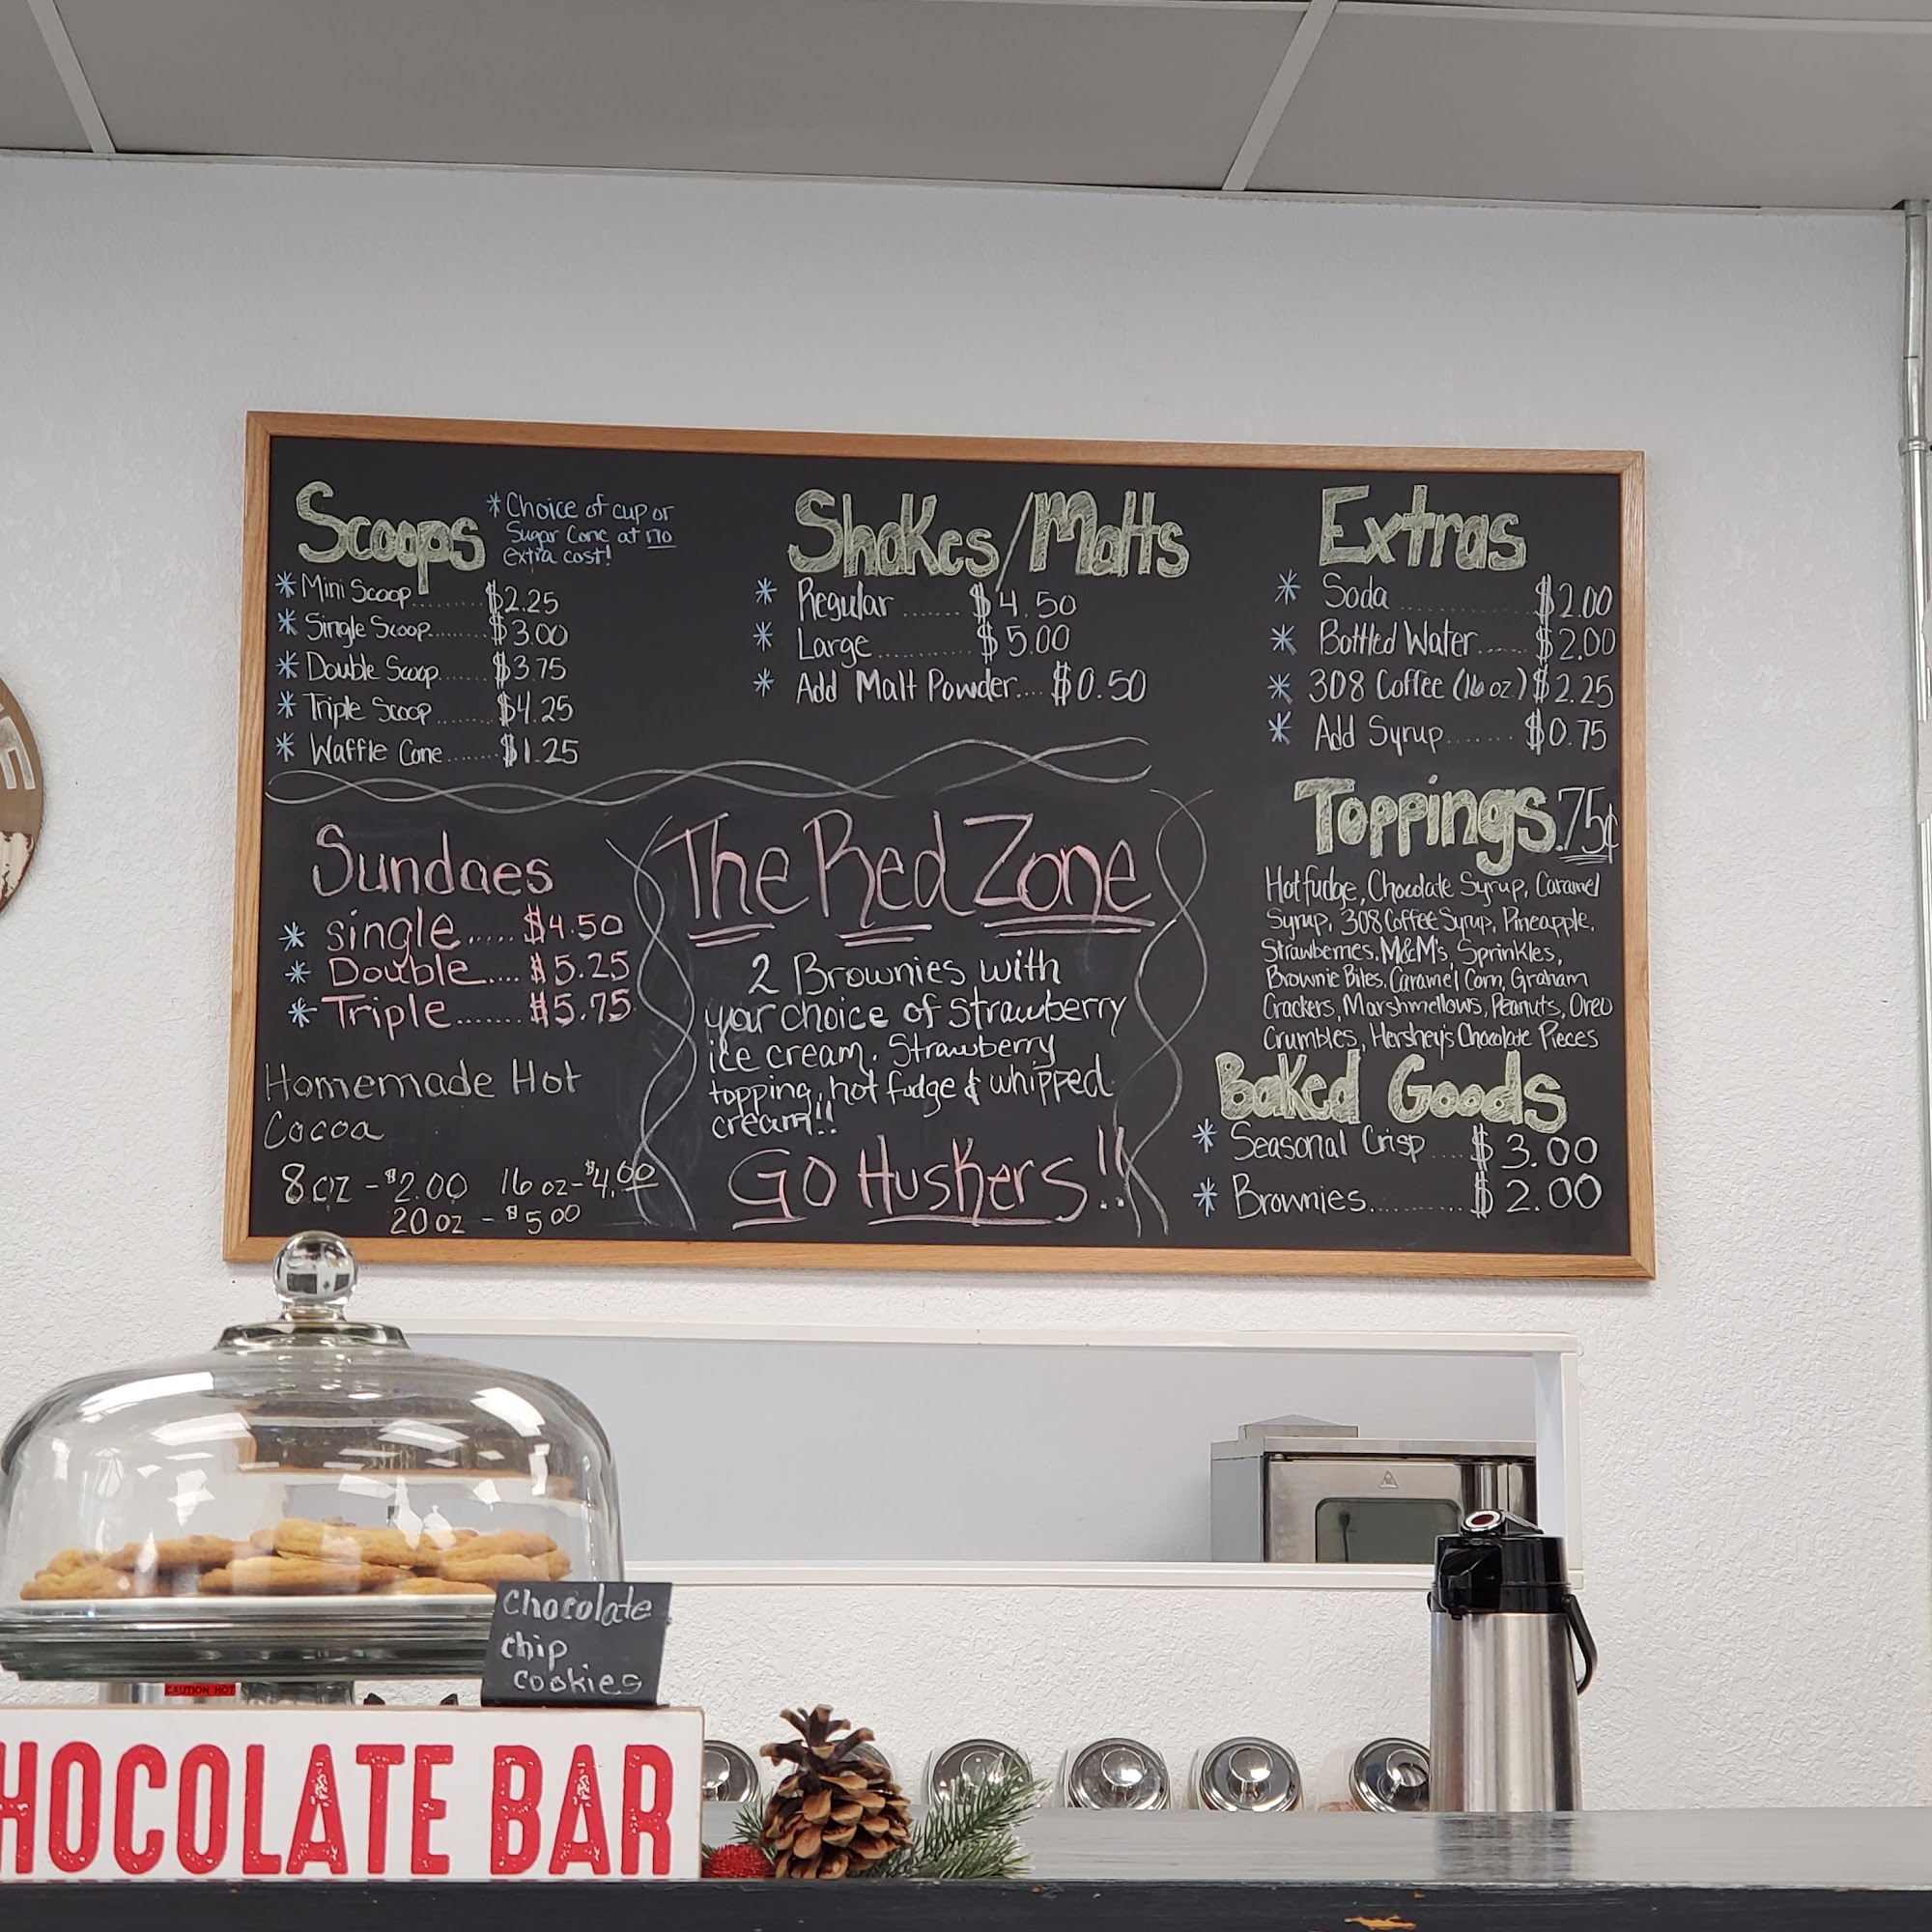 Scoops
*Choice of cup or
Sugar Cone at no
extra cost!
* Mini Scoop........ $2.25
* Single Scoop........ $3.00
* Double Scoop....... $3.75
* Triple Scoop........ $4.25
* Waffle Cone....... $1.25
Shakes/Malts
* Regular ....... $4.50
* Large............ $5.00
* Add Malt Powder.... $0.50
Extras
* Soda ............... $2.00
* Bottled Water...... $2.00
* 308 Coffee (16 oz.) $2.25
* Add Syrup....... $0.75
Toppings .75¢
Hot fudge, Chocolate Syrup, Caramel
Syrup, 308 Coffee Syrup, Pineapple,
Strawberries, M&M's, Sprinkles,
Brownie Bites, Caramel Corn, Graham
Crackers, Marshmellows, Peanuts, Oreo
Crumbles, Hershey's Chocolate Pieces
Baked Goods
* Seasonal Crisp .... $3.00
* Brownies........... $2.00
Sundaes
* single..... $4.50
* Double.... $5.25
* Triple....... $5.75
Homemade Hot
Cocoa
8 oz - $2.00 16 oz - $4.00
20 oz - $5 00
The Red Zone
2 Brownies with
your choice of Strawberry
ice cream. Strawberry
topping, hot fudge & whipped
cream!!
GO Huskers!!
chocolate
chip
cookies
CAUTION HOT
HOCOLATE BAR